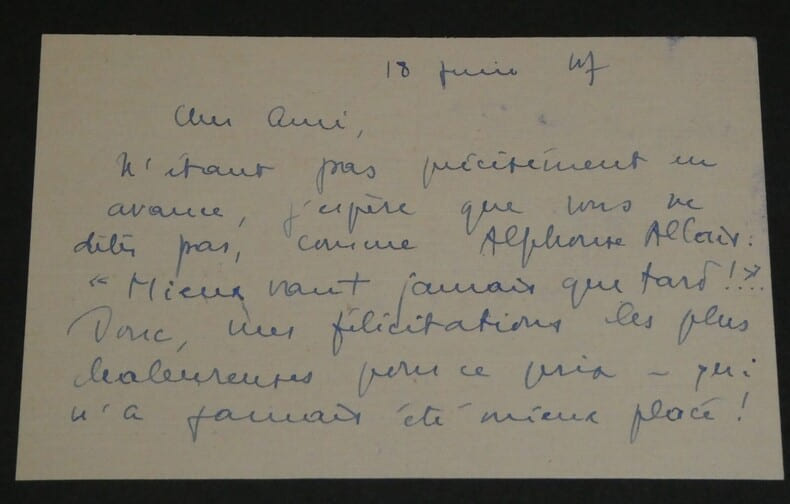 18 juin 47
Cher Ami,
N'étant pas précisément en
avance, j'espère que vous ne
dites pas, comme Alphonse Allais:
"Mieux vaut jamais que tard!"...
Donc, mes félicitations les plus
chaleureuses pour ce prix – qui
n'a jamais été mieux placé!